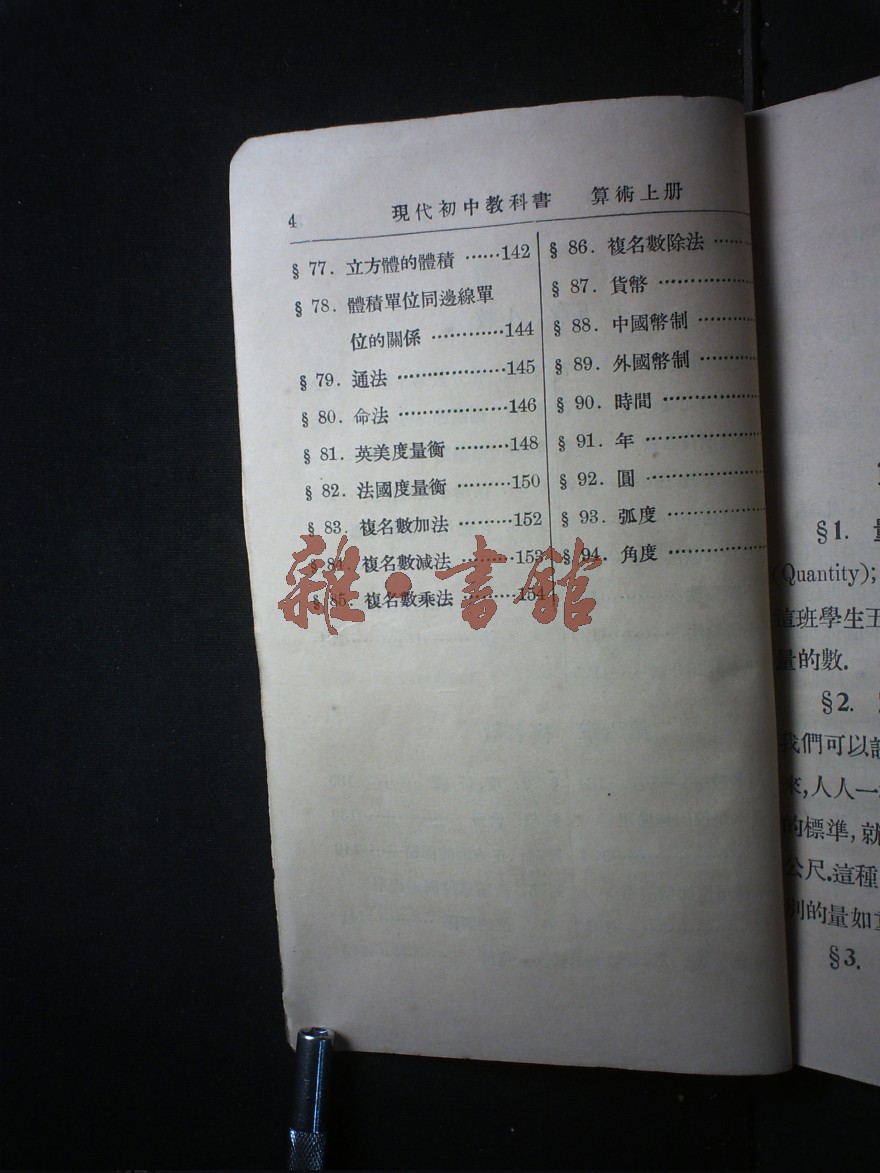 4 現代初中教科書 算術上册
§ 77. 立方體的體積 ……142
§ 78. 體積單位同邊線單
位的關係 …………144
§ 79. 通法 ………………145
§ 80. 命法 ………………146
§ 81. 英美度量衡 ………148
§ 82. 法國度量衡 ………150
§ 83. 複名數加法 ………152
§ 84. 複名數減法 ………153
§ 85. 複名數乘法 ………154
§ 86. 複名數除法 ……
§ 87. 貨幣 …………
§ 88. 中國幣制 ………
§ 89. 外國幣制 ………
§ 90. 時間 …………
§ 91. 年 ……………
§ 92. 圓 ……………
§ 93. 弧度 …………
§ 94. 角度 …………
雜·書館
§1.
(Quantity);
這班學生五
量的數.
§2.
我們可以
來,人人一
的標準,就
公尺.這種
別的量如
§3.